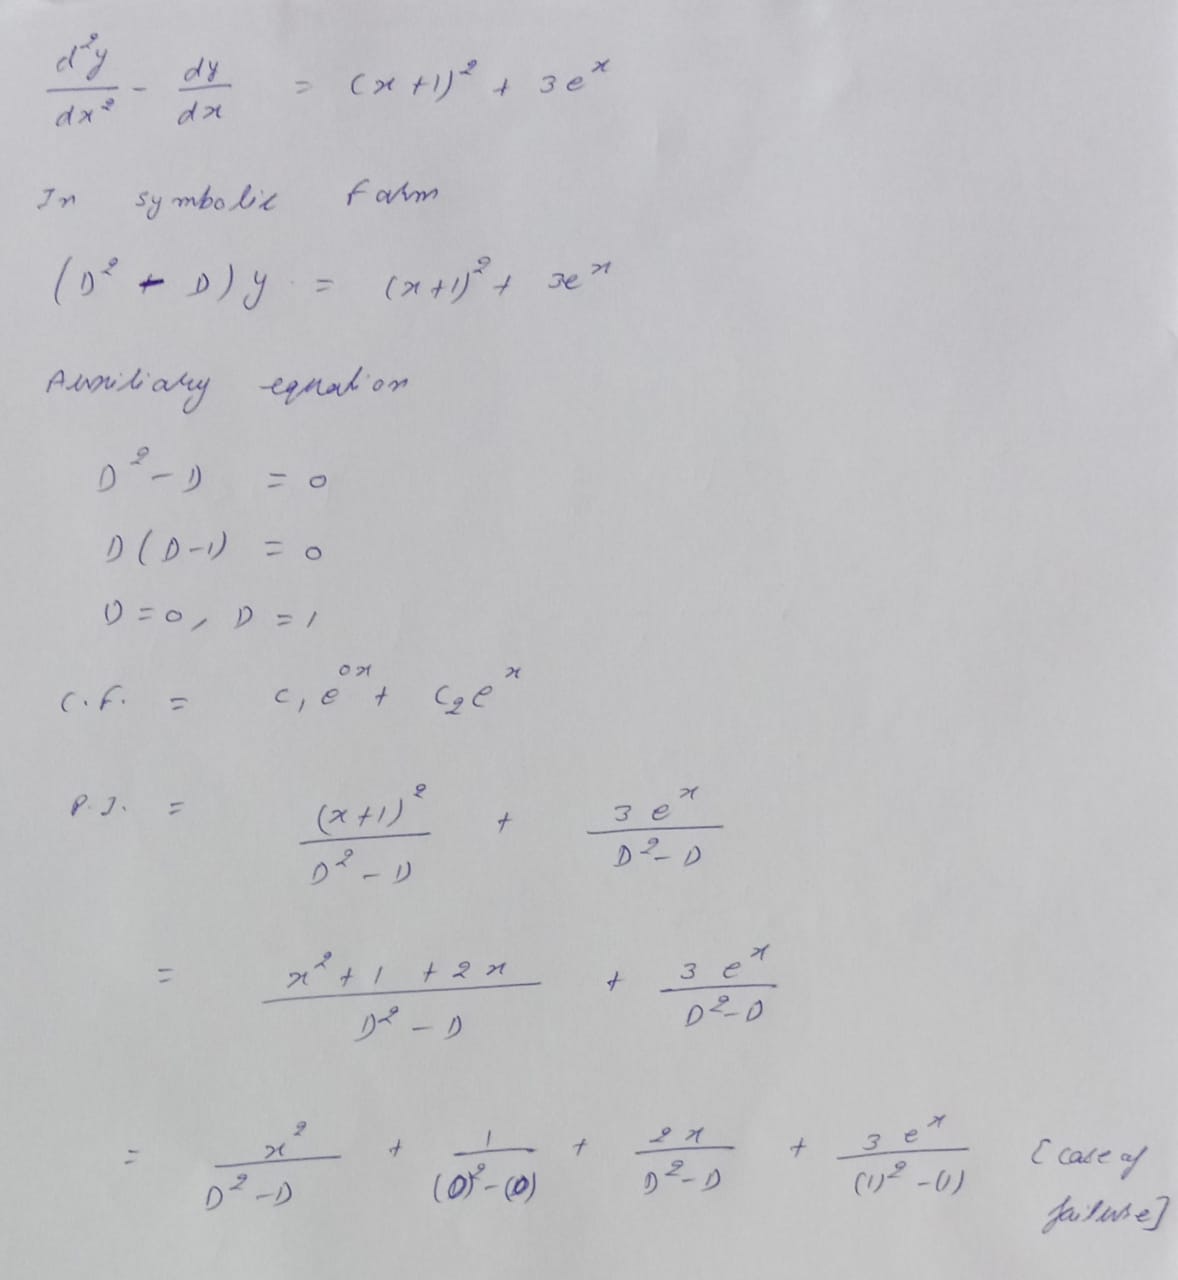 d²y/dx² - dy/dx = (x+1)² + 3eˣ
In symbolic form
(D² - D)y = (x+1)² + 3eˣ
Auxiliary equation
D² - D = 0
D(D-1) = 0
D=0, D=1
C.F. = c₁e⁰ˣ + c₂eˣ
P.I. = (x+1)²/(D² - D) + 3eˣ/(D² - D)
= (x² + 1 + 2x)/(D² - D) + 3eˣ/(D² - D)
= x²/(D² - D) + 1/((0)² - (0)) + 2x/(D² - D) + 3eˣ/((1)² - (1)) [case of failure]